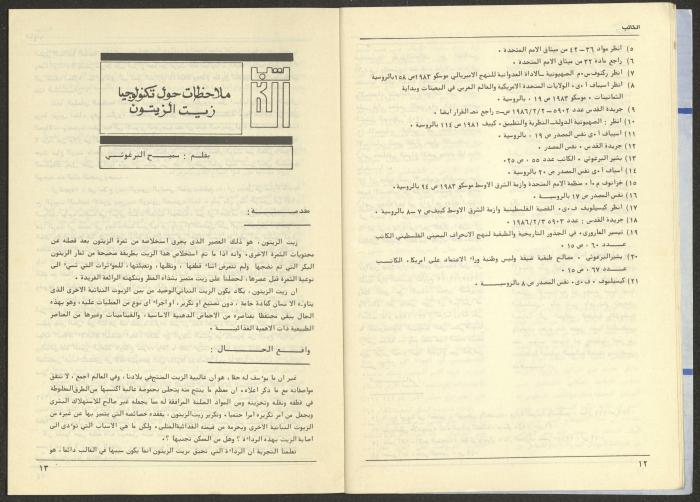 الكاتب
٥) انظر مواد ٣٦ – ٤٢ من ميثاق الامم المتحدة .
٦) راجع مادة ٣٢ من ميثاق الامم المتحدة .
٧) انظر ركنوف.م. الصهيونية ــ الاداة العدوانية للنهج الامبريالي موسكو ١٩٨٣ ص ١٥٨ بالروسية
٨) انظر اسيياف أ.ى. الولايات المتحدة الامريكية والعالم العربي في السبعينات وبداية
الثمانينات . موسكو ١٩٨٣ ص ١٩ . بالروسية .
٩) جريدة القدس عدد ٥٩٠٢ ١٩٨٦/٢/٢ راجع نص القرار ايضا .
١٠) انظر : الصهيونية الدولية النظرية والتطبيق . كييف ١٩٨١ ص ١١٤ بالروسية .
١١) اسيياف أ.ى نفس المصدر ص ١٩ . بالروسية .
١٢) جريدة القدس . نفس المصدر .
١٣) بشير البرغوثي . الكاتب عدد ٥٥ . ص ٢٥.
١٤) اسياف أ.ى. نفس المصدر ص ٢٠ بالروسية .
١٥) خزانوف م.أ. منظمة الامم المتحدة وازمة الشرق الاوسط موسكو ١٩٨٣ ص ٩٤ بالروسية.
١٦) نفس المصدر ص ١٧ بالروسيـــة .
١٧) انظر كيسيلوف ف.ى. القضية الفلسطينية وازمة الشرق الاوسط كييف ص ٧ــ٨ بالروسية .
١٨) جريدة القدس : عدد ٥٩٠٣ ١٩٨٦/٢/٣ .
١٩) تيسير العاروري . في الجذور التاريخية والطبقية لنهج الانحراف اليميني الفلسطيني الكاتب
عـــدد ٦٠ . ص ١٥ .
٢٠) بشير البرغوثي . مصالح طبقية ضيقة وليس وطنية وراء الاعتماد على امريكا. الكاتـــب
عـــدد ٦٧ . ص ١٥ .
٢١) كيسيليوف . ف.ى . نفس المصدر ص ٨ بالروسيـــة .
١٢
ملاحظات حول تكنولوجيا
زيت الزيتون
بقلم : سميح البرغوثي
مقدمـــــة :
زيت الزيتون ، هو ذلك العصير الذي يجرى استخلاصه من ثمرة الزيتون بعد فصله عن
محتويات الثمرة الاخرى . وانه اذا ما تم استخلاص هذا الزيت بطريقة صحيحة من ثمار الزيتون
البكر التي تم نضجها ولم تتعرض اثناء قطفها ، ونقلها ، وتعبئتها ، للمؤثرات التي تسيء الى
نوعية الثمرة قبل عصرها ، لحصلنا على زيت متميز بشذاء العطر وبنكهته الرائعة الفريدة .
ان زيت الزيتون ، يكاد يكون الزيت النباتي الوحيد من بين الزيوت النباتية الاخرى الذي
يتناوله الانسان كمادة خامة ، دون تصنيع او تكرير، او اجراء اى نوع من العمليات عليه . وهو بهذه
الحال يبقى محتفظا بعناصره من الاحماض الدهنية الاساسية ، والفيتامينات وغيرها من العناصر
الطبيعية ذات الاهمية الغذائيـــة .
واقـــع الحـــــال :
غير ان ما يؤسف له حقا ، هو ان غالبية الزيت المنتج في بلادنا ، وفي العالم اجمع ، لا تتفق
مواصفاته مع ما ذكر اعلاه . ان معظم ما ينتج منه يتحلى بحموضة عالية اكتسبها من الطرق المغلوطة
في قطفه ونقله وتخزينه ومن المواد الصلبة المرافقة له مما يجعله غير صالح للاستهلاك البشرى
ويجعل من امر تكريره امرا حتميا . وتكرير زيت الزيتون ، يفقده خصائصه التي يتميز بها عن غيره من
الزيوت النباتية الاخرى ويحرمه من قيمته الغذائية المثلى . ولكن ما هي الاسباب التي تؤدى الى
اصابة الزيت بهذه الرداءة ؟ وهل من الممكن تجنبها ؟ .
تعلمنا التجربة ان الرداءة التي تحيق بزيت الزيتون انما يكون سببها في الغالب دائما ، هو
١٣